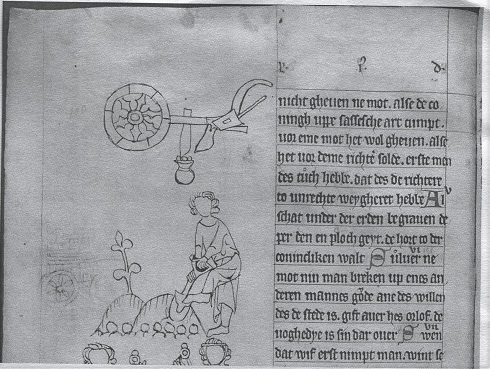 r. p. d.
nicht gheuen ne mot. alse de co
ningh uppe sassesche art cumpt.
uor eme mot het wol gheuen. alse
het uor deme richte solde. erste men
des tuch hebbe. dat des de richtere
to unrechte weygheret hebbe Al
schat under der erden begrauen de
per den en ploch geyt. de hort to der
conincliken walt Siluer ne
mot nin man breken up enes an
deren mannes gode ane des willen
des de stede is. gift auer hes orlof. de
uoghedye is sin dar ouer Swen
dat wif erst nimpt man. wint se